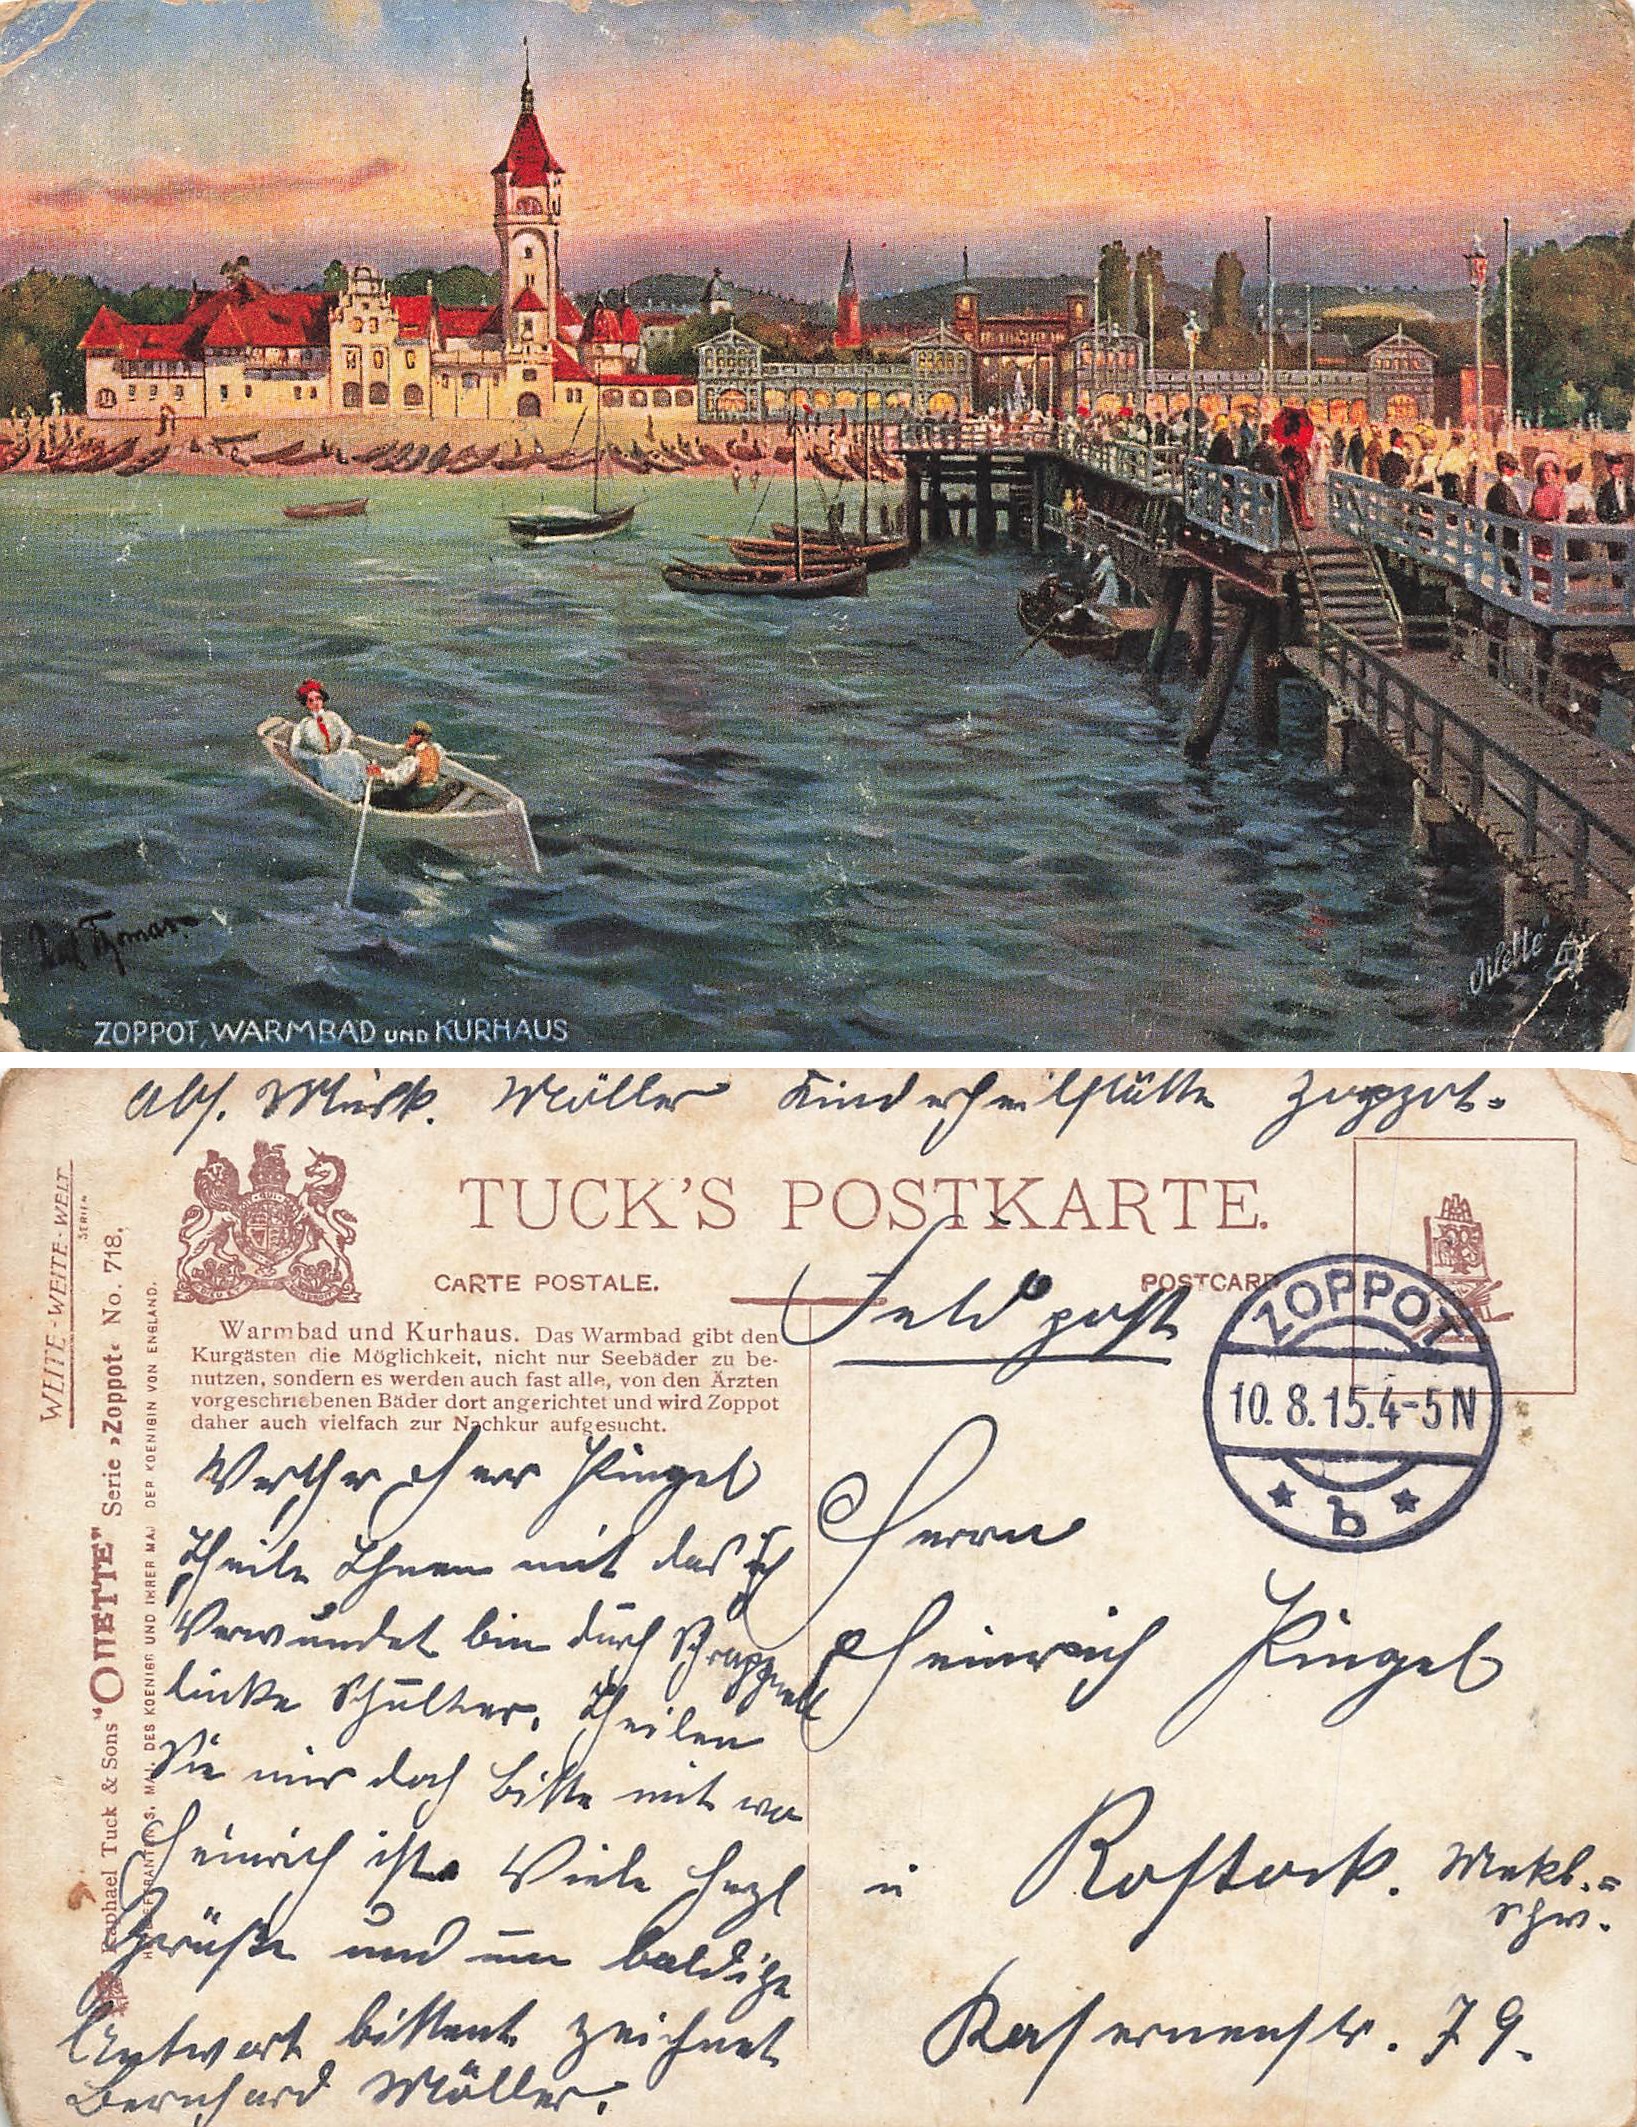 ZOPPOT, WARMBAD UND KURHAUS
Oilette
Abs. Musk. Möller Kinderheilstätte Zoppot.
TUCK'S POSTKARTE.
CARTE POSTALE.
POSTCARD
Feldpost
Warmbad und Kurhaus. Das Warmbad gibt den
Kurgästen die Möglichkeit, nicht nur Seebäder zu be-
nutzen, sondern es werden auch fast alle, von den Ärzten
vorgeschriebenen Bäder dort angerichtet und wird Zoppot
daher auch vielfach zur Nachkur aufgesucht.
WEITE-WEITE-WELT
SERIEN
Raphael Tuck & Sons "OILETTE" Serie »Zoppot« No. 718.
HOFLIEFERANTEN S. MAJ. DES KOENIGS UND IHRER MAJ. DER KOENIGIN VON ENGLAND.
ZOPPOT
10.8.15.4-5N
* b *
Werther Herr Pingel
Theile Ihnen mit das ich
Verwundet bin durch Schrappnell
linke Schulter. Theilen
Sie mir doch bitte mit wo
Heinrich ist. Viele herzl
Grüße und um baldige
Antwort bittent zeichnet
Bernhard Möller.
Herrn
Heinrich Pingel
in Rostock. Meklb.=
Schw.
Kasernenstr. 79.